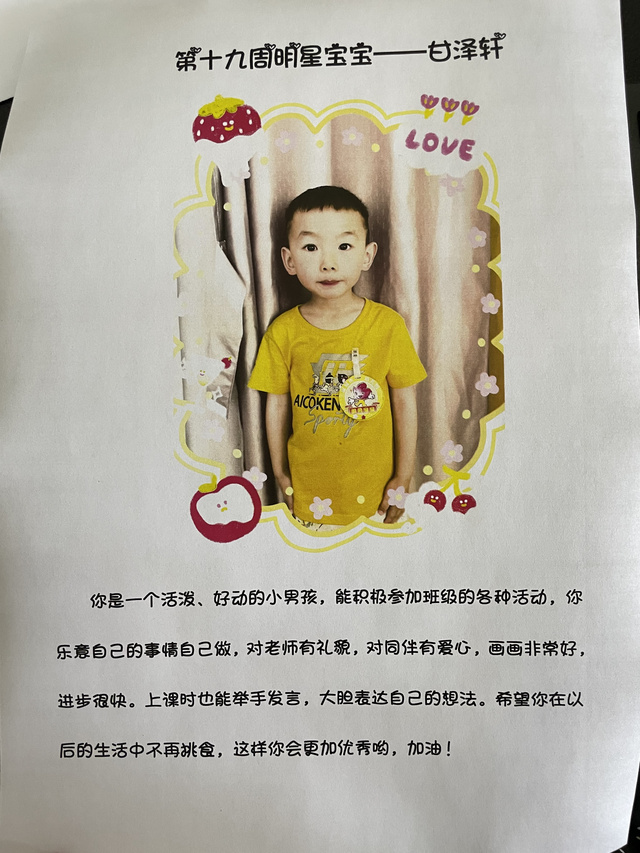 第十九周明星宝宝——甘泽轩
LOVE
AICOKEN
Sporty
你是一个活泼、好动的小男孩，能积极参加班级的各种活动，你
乐意自己的事情自己做，对老师有礼貌，对同伴有爱心，画画非常好，
进步很快。上课时也能举手发言，大胆表达自己的想法。希望你在以
后的生活中不再挑食，这样你会更加优秀哟，加油！